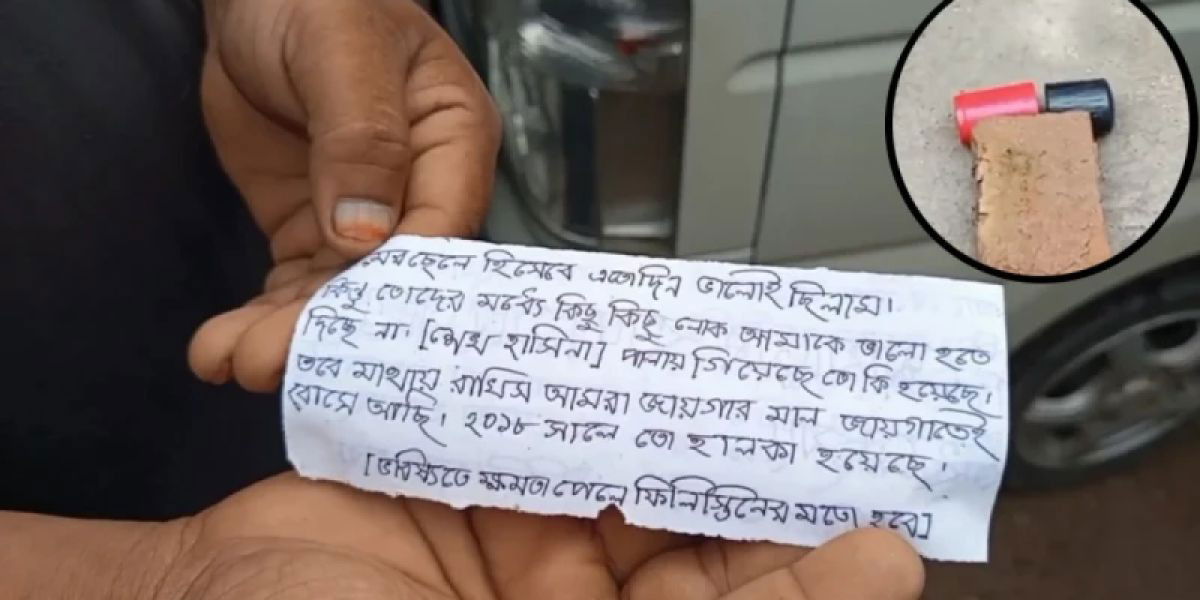 ঘরছেলে হিসেবে এতোদিন ভালোই ছিলাম।
কিন্তু তোদের মর্ধ্যে কিছু কিছু লোক আমাকে ভালো হতে
দিছে না। [শেখ হাসিনা] পালায় গিয়েছে তো কি হয়েছে।
তবে মাথায় রাখিস আমরা জায়গার মাল জায়গাতেই
বোসে আছি। ২০১৮ সালে তো হালকা হয়েছে।
[ভবিষ্যিতে ক্ষমতা পেলে ফিলিস্তিনের মতো হবে]